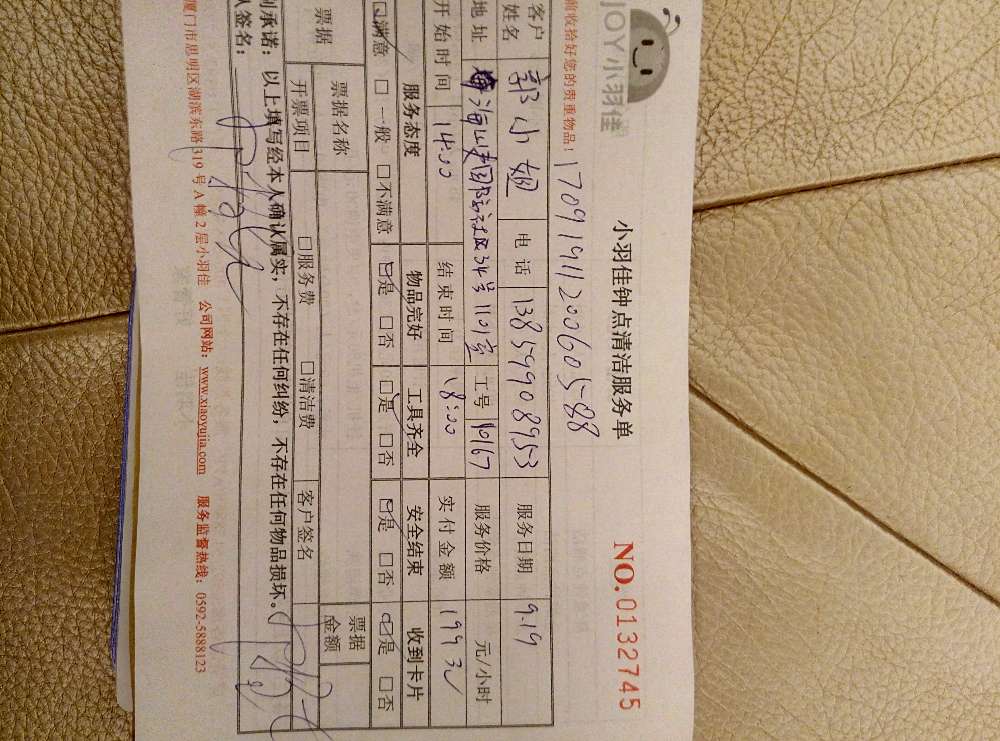 JOY小羽佳
小羽佳钟点清洁服务单
NO.0132745
收拾好您的贵重物品！
1709191120060588
客户姓名 郭小姐 电话 13859908953 服务日期 9.19
地址 海山美国际社区34号1101室 工号 10167 服务价格 元/小时
开始时间 14:00 结束时间 18:00 实付金额 199元
服务态度 物品完好 工具齐全 安全结束 收到卡片
☑满意 □一般 □不满意 ☑是 □否 ☑是 □否 ☑是 □否 ☑是 □否
票据 票据名称 票据金额
开票项目 □服务费 □清洁费 客户签名
承诺：以上填写经本人确认属实，不存在任何纠纷，不存在任何物品损坏。
签名：
厦门市思明区湖滨东路319号A幢2层小羽佳 公司网站：www.xiaoyujia.com 服务监督热线：0592-5888123